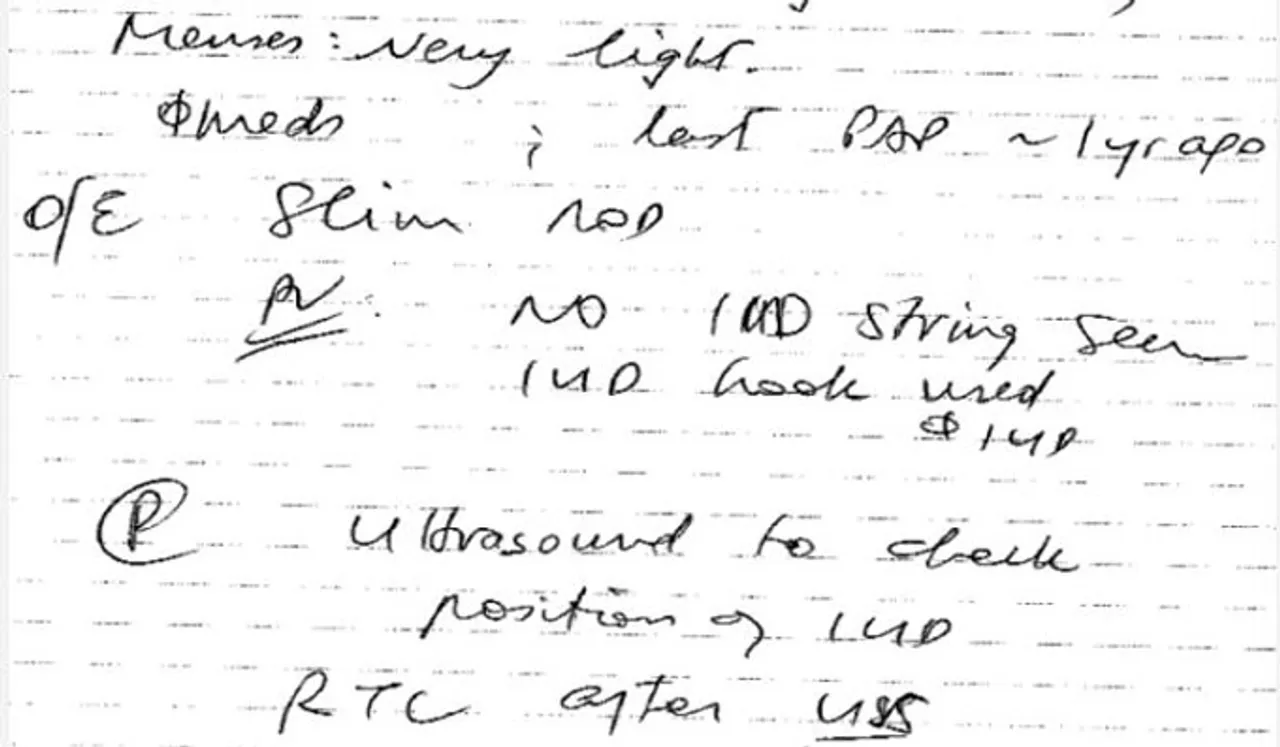 Menses: Very light.
∅meds ; last PAP ~ 1 yr ago
O/E Slim NAD
PV: NO IUD string seen
IUD hook used
∅ IUD
Ⓟ Ultrasound to check
position of IUD
RTC after USS